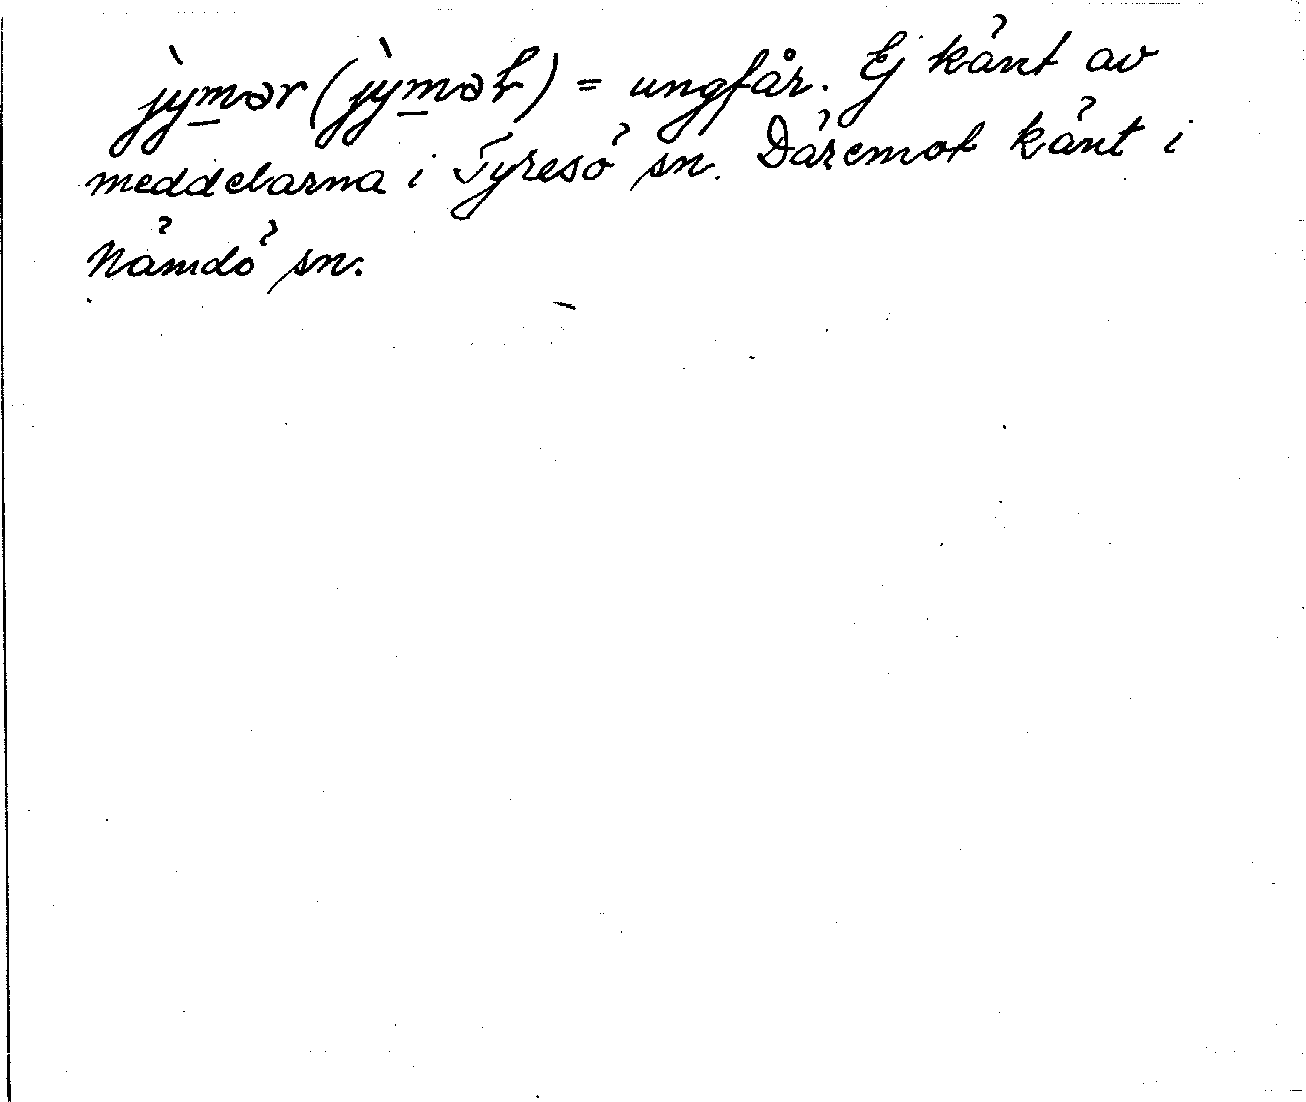 jy̲màr (jy̲màt) = ungfår. Ej känt av
meddelarna i Tyresö sn. Däremot känt i
Nämdö sn.